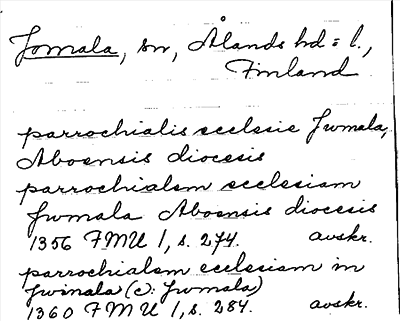 Jomala, sn, Ålands hd = l.,
Finland
parrochialis ecclesie Jwmala,
Aboensis diocesis
parrochialem ecclesiam
Jwmala Aboensis diocesis
1356 FMU 1, s. 274. avskr.
parrochialem ecclesiam in
Jwinala (ɔ: Jwmala)
1360 FMU 1, s. 284. avskr.